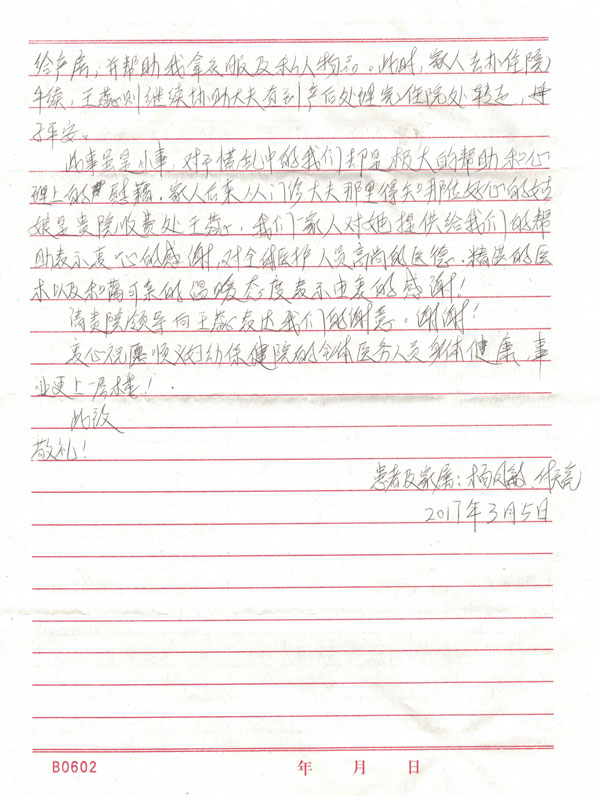 给产房，并帮助我拿衣服及私人物品。此时，家人去办住院
手续，王燕则继续协助大夫直到产后处理完住院处转走，母
子平安。
此事虽是小事，对于慌乱中的我们却是极大的帮助和心
理上的慰藉。家人后来从门诊大夫那里得知那位好心的姑
娘是贵院收费处王燕，我们一家人对她提供给我们的帮
助表示衷心的感谢，对全体医护人员高尚的医德、精湛的医
术以及和蔼可亲的温暖态度表示由衷的感谢！
请贵院领导向王燕表达我们的谢意。谢谢！
衷心祝愿顺义妇幼保健院的全体医务人员身体健康，事
业更上一层楼！
此致
敬礼！
患者及家属：杨凤敏
2017年3月5日
B0602 年 月 日